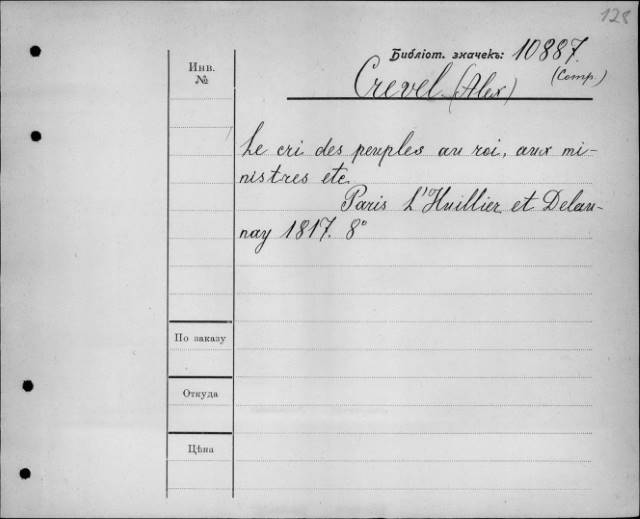 128
Библіот. значекъ: 10887.
Инв.
№
Crevel (Alex)
(Comp.)
Le cri des peuples au roi, aux mi-
nistres etc
Paris L'Huillier et Delau-
nay 1817. 8°
По заказу
Откуда
Цѣна